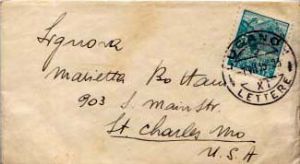 Signora
Marietta Bottani
903 S. Main str.
St Charles Mo
U.S.A
XI
LETTERE